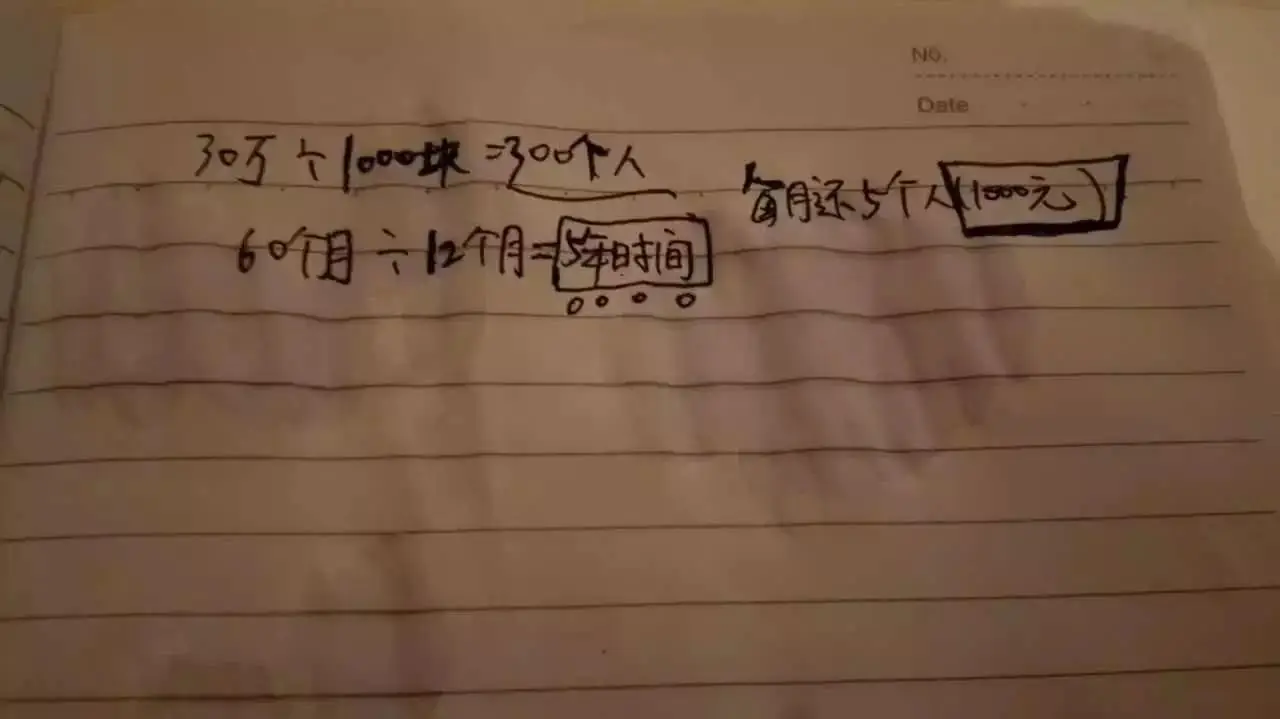 No.
Date
30万÷1000块=300个人
每月还5个人(1000元)
60个月÷12个月=5年时间